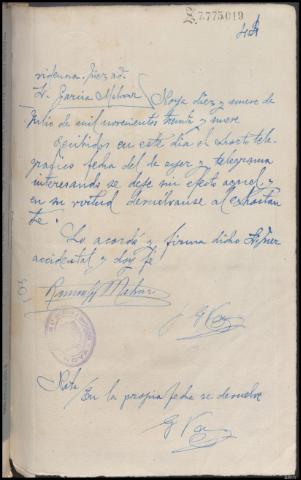 7.775.019
videncia. Juez ac.
Sr. Garcia Malvar
Noya diez y nueve de
Julio de mil novecientos treinta y nueve
Recibidos en este dia el exhorto tele-
grafico fecha del de ayer y telegrama
interesando se deje sin efecto aquel, y
en su virtud devuelvanse al exhortan-
te.
Lo acordó y firma dicho Sr Juez
accidental y doy fé
Ramon G Malvar
G Vaz
Nota
En la propia fecha se devuelve
G Va